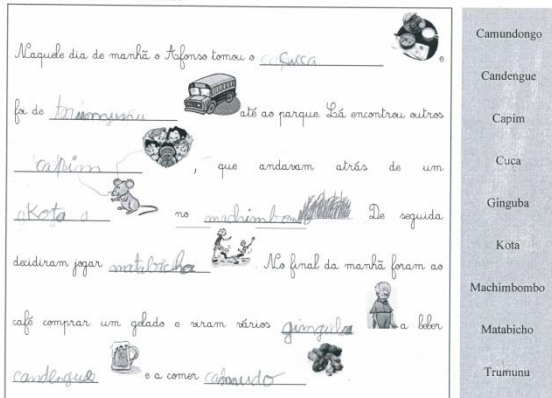 Naquele dia de manhã o Afonso tomou o caçuca e
foi de trumunu até ao parque. Lá encontrou outros
capim, que andavam atrás de um
Kota a no machimbom De seguida
decidiram jogar matabicho. No final da manhã foram ao
café comprar um gelado e viram vários ginguba a beber
candengue e a comer camudo
Camundongo
Candengue
Capim
Cuca
Ginguba
Kota
Machimbombo
Matabicho
Trumunu